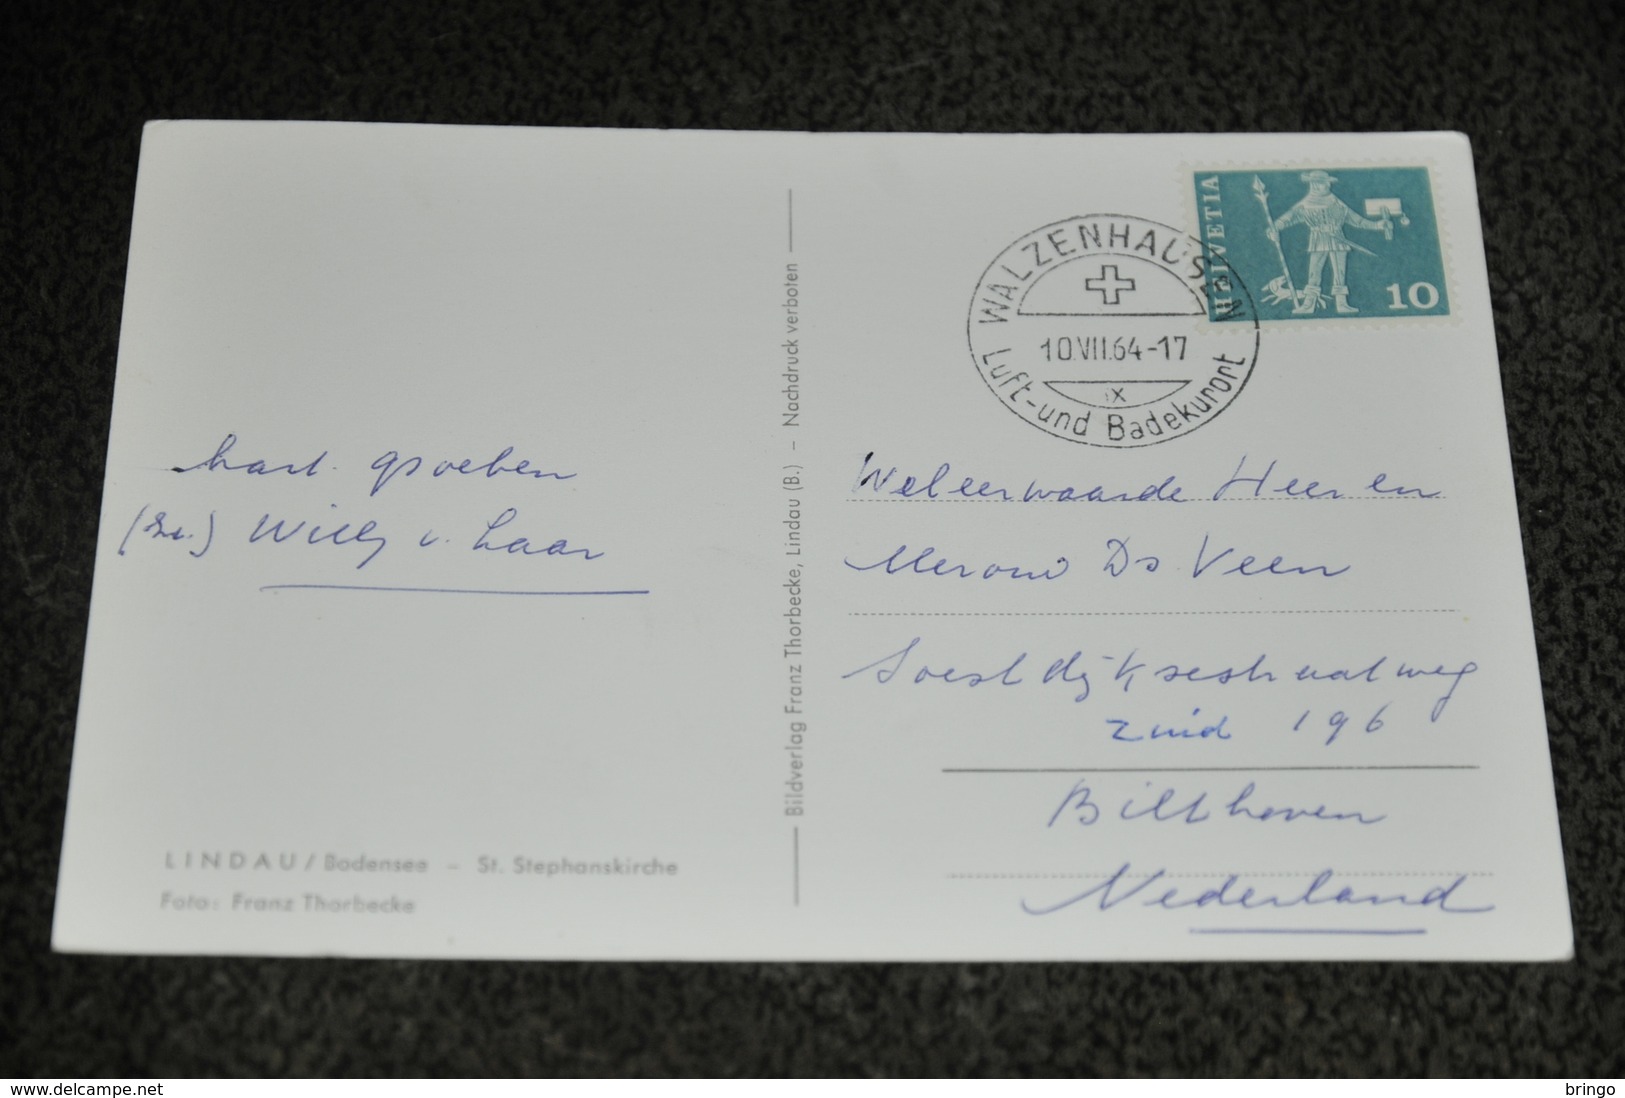 HELVETIA
10
WALZENHAUSEN
10.VII.64-17
Luft-und Badekurort
hart. groeten
Willy v. Laar
Bildverlag Franz Thorbecke, Lindau (B.) – Nachdruck verboten
Weleerwaarde Heer en
Ds Veen
Soestdijksestraatweg
zuid 196
Bilthoven
Nederland
LINDAU / Bodensee – St. Stephanskirche
Foto: Franz Thorbecke
www.delcampe.net
bringo